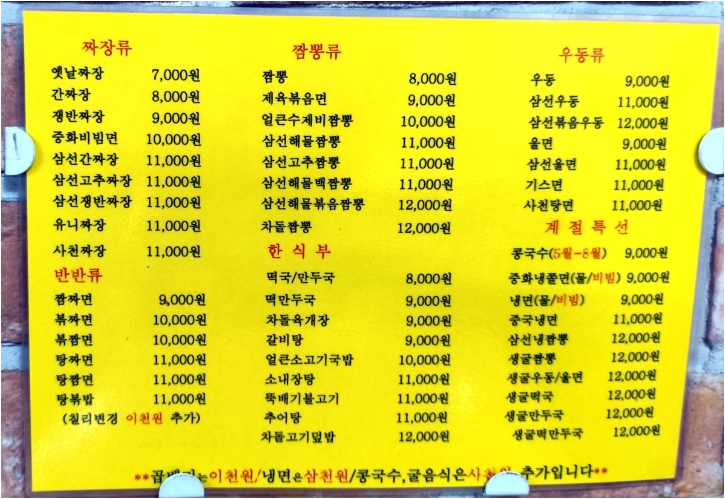 짜장류
옛날짜장 7,000원
간짜장 8,000원
쟁반짜장 9,000원
중화비빔면 10,000원
삼선간짜장 11,000원
삼선고추짜장 11,000원
삼선쟁반짜장 11,000원
유니짜장 11,000원
사천짜장 11,000원
반반류
짬짜면 9,000원
볶짜면 10,000원
볶짬면 10,000원
탕짜면 11,000원
탕짬면 11,000원
탕볶밥 11,000원
(칠리변경 이천원 추가)
짬뽕류
짬뽕 8,000원
제육볶음면 9,000원
얼큰수제비짬뽕 10,000원
삼선해물짬뽕 11,000원
삼선고추짬뽕 11,000원
삼선해물백짬뽕 11,000원
삼선해물볶음짬뽕 12,000원
차돌짬뽕 12,000원
한식부
떡국/만두국 8,000원
떡만두국 9,000원
차돌육개장 9,000원
갈비탕 9,000원
얼큰소고기국밥 10,000원
소내장탕 11,000원
뚝배기불고기 11,000원
추어탕 11,000원
차돌고기덮밥 12,000원
우동류
우동 9,000원
삼선우동 11,000원
삼선볶음우동 12,000원
울면 9,000원
삼선울면 11,000원
기스면 11,000원
사천탕면 11,000원
계절특선
콩국수(5월~8월) 9,000원
중화냉쫄면(물/비빔) 9,000원
냉면(물/비빔) 9,000원
중국냉면 11,000원
삼선냉짬뽕 12,000원
생굴짬뽕 12,000원
생굴우동/울면 12,000원
생굴떡국 12,000원
생굴만두국 12,000원
생굴떡만두국 12,000원
**곱배기는이천원/냉면은삼천원/콩국수,굴음식은사천원 추가입니다**